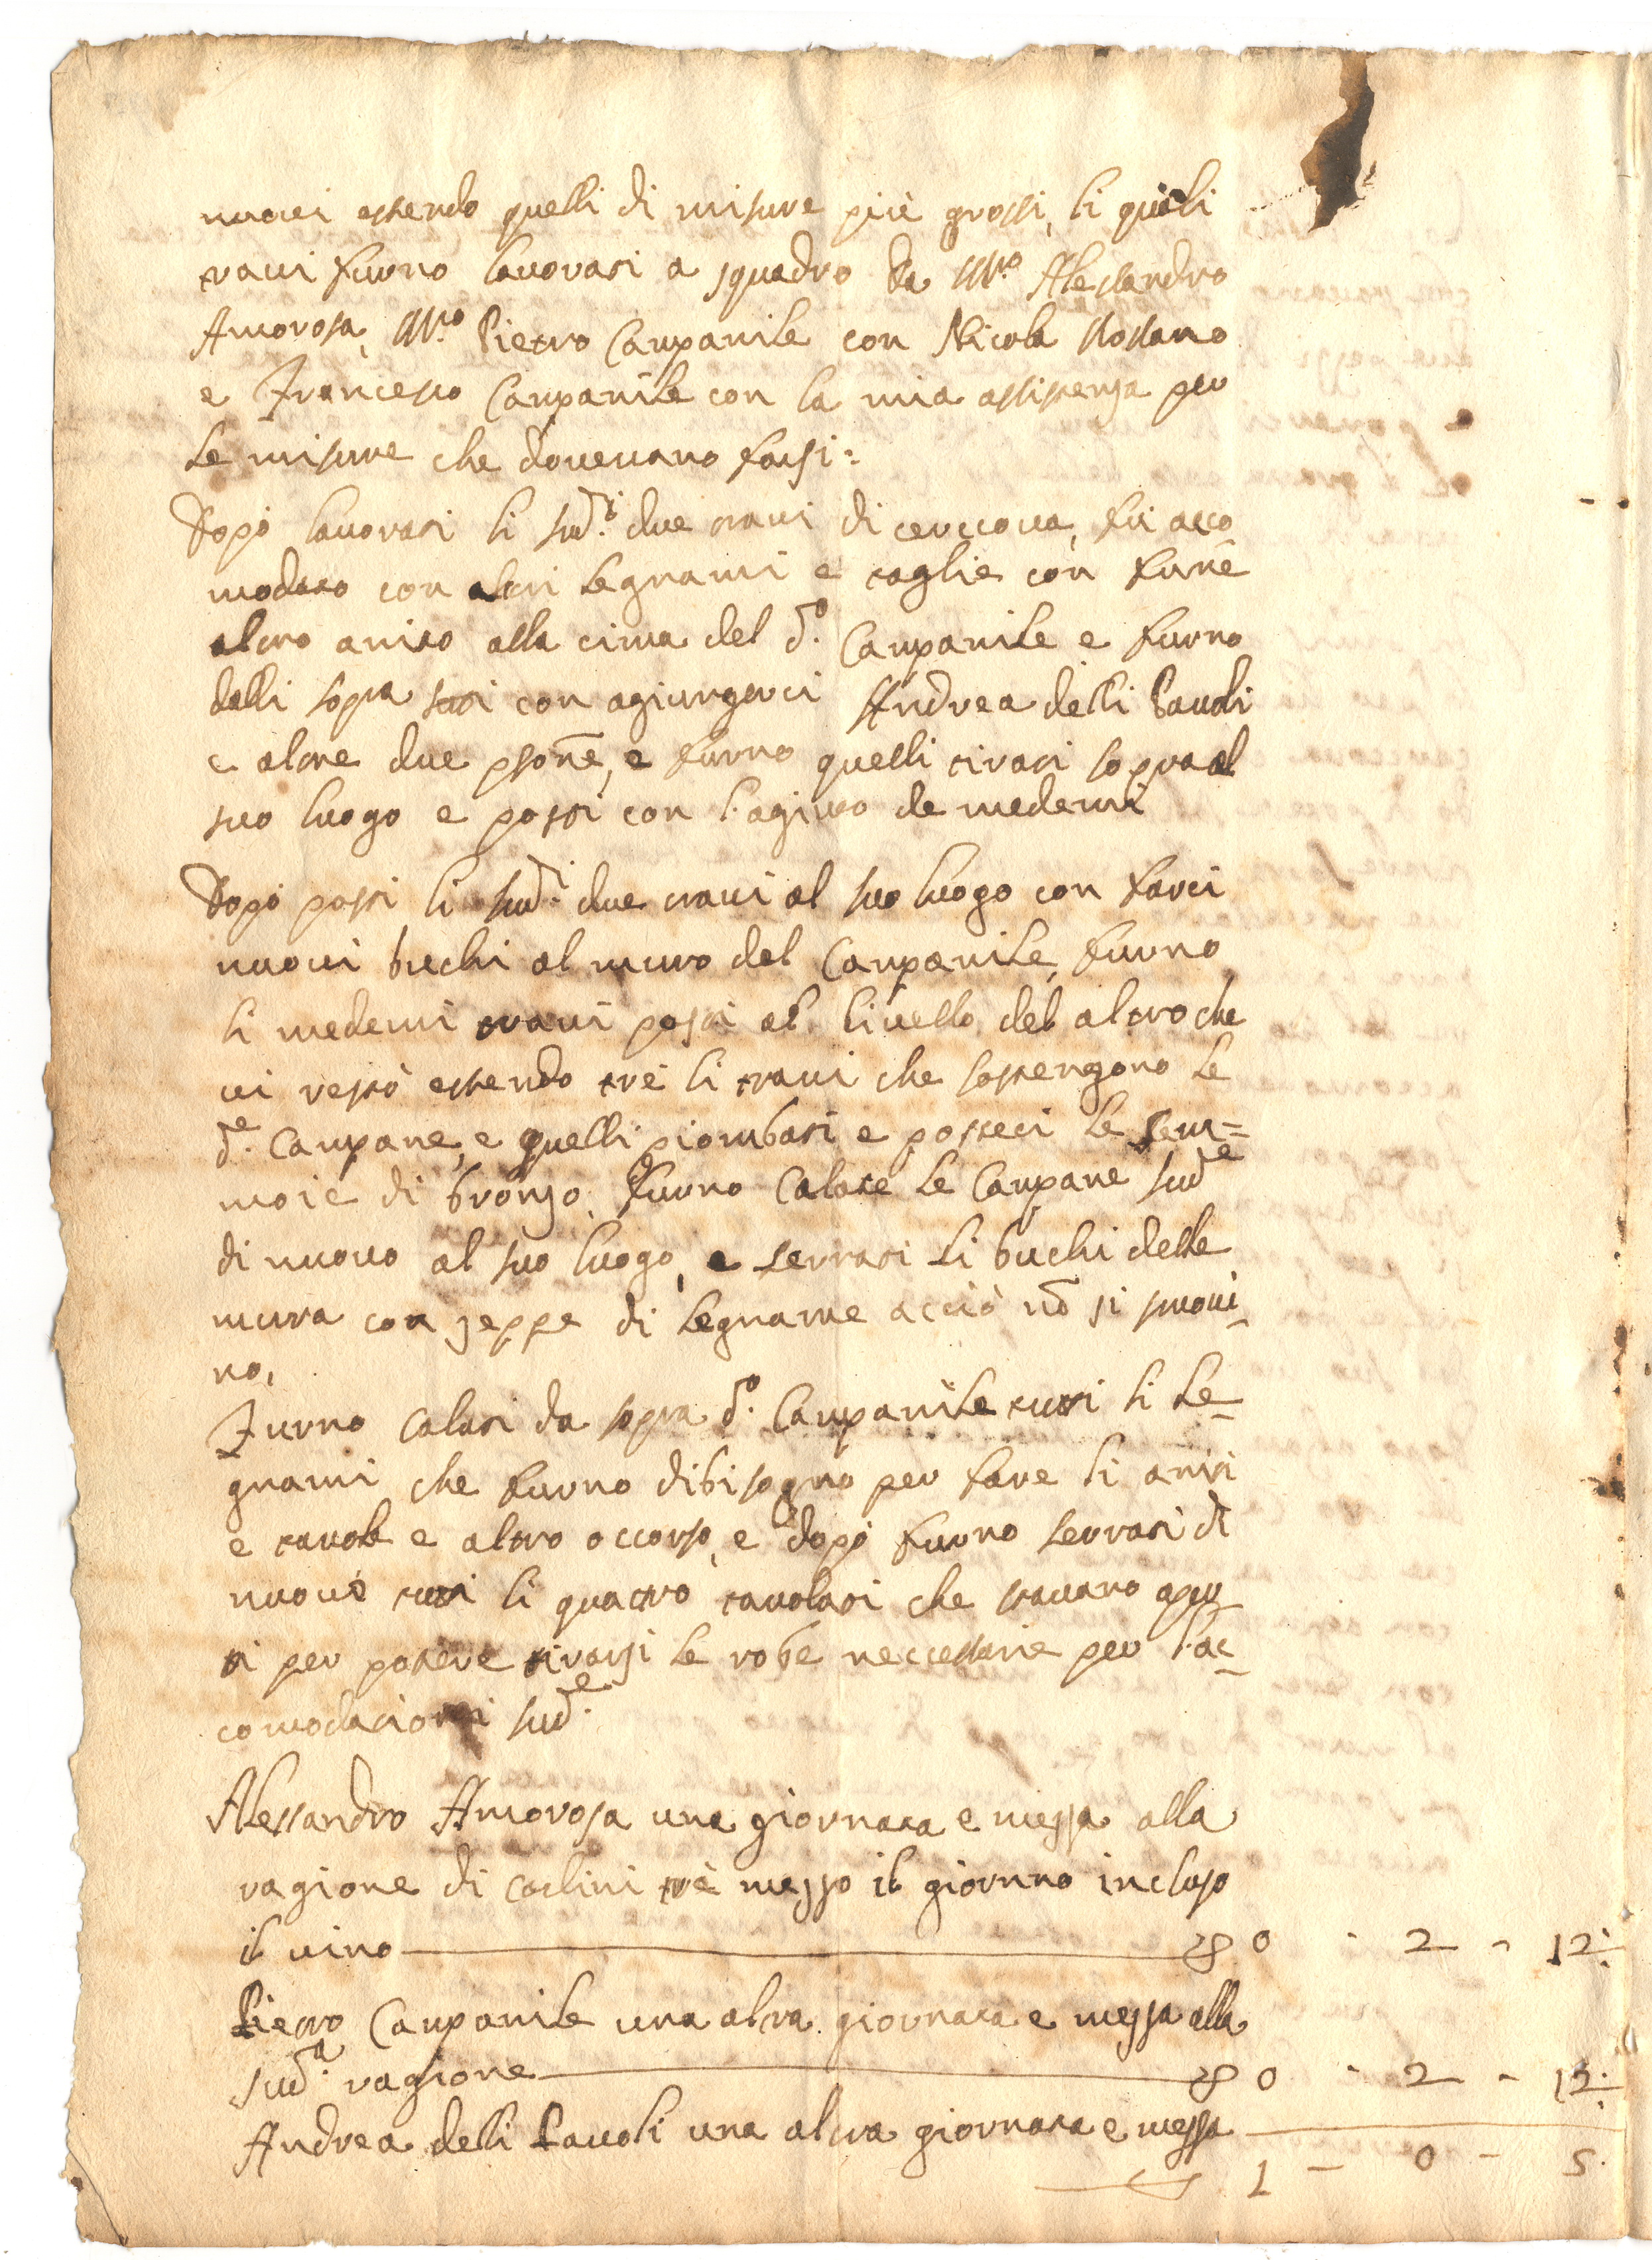 nuovi essendo quelli di misure più grossi, li quali
travi furno lavorati a squadro da M.ro Alessandro
Amorosa, M.ro Pietro Campanile con Nicola Rossano
e Francesco Campanile con la mia assistenza per
le misure che dovevano farsi:
Dopo lavorati li sud.i due travi di cerccova, fu acco
modato con altri legnami e taglie con fune
altro anito alla cima del d.o Campanile e furno
dalli sopra tutti con agiungerci Andrea delli Paudi
e altre due psone, e furno quelli tirati sopra al
suo luogo e posti con l'agiuto de medemi
Dopo posti li sud.i due travi al suo luogo con farci
nuovi buchi al muro del Campanile, furno
li medemi travi posti al livello del altro che
vi restò essendo trè li travi che sostengono le
d.e Campane, e quelli piombati e posteci le sem=
moie di bronzo, furno calate le Campane sud.e
di nuovo al suo luogo, e serrati li buchi delle
mura con zeppe di legname acciò nō si smovi-
no,
Furno calati da sopra d.o Campanile tutti li le-
gnami che furno dibisogno per fare li aniti
e tavole e altro occorso, e dopo furno serrati di
nuovo tutti li quattro tavolati che stavano aper
ti per potere tirarsi le robe neccessarie per l'ac-
comodationi sud.e
Alessandro Amorosa una giornata e mezza alla
ragione di carlini trè mezzo il giornno incluso
il vino 0 - 2 - 12:
Pietro Campanile una altra giornata e mezza alla
sud.a ragione 0 - 2 - 12:
Andrea delli Pauoli una altra giornata e mezza
1 - 0 - 5.